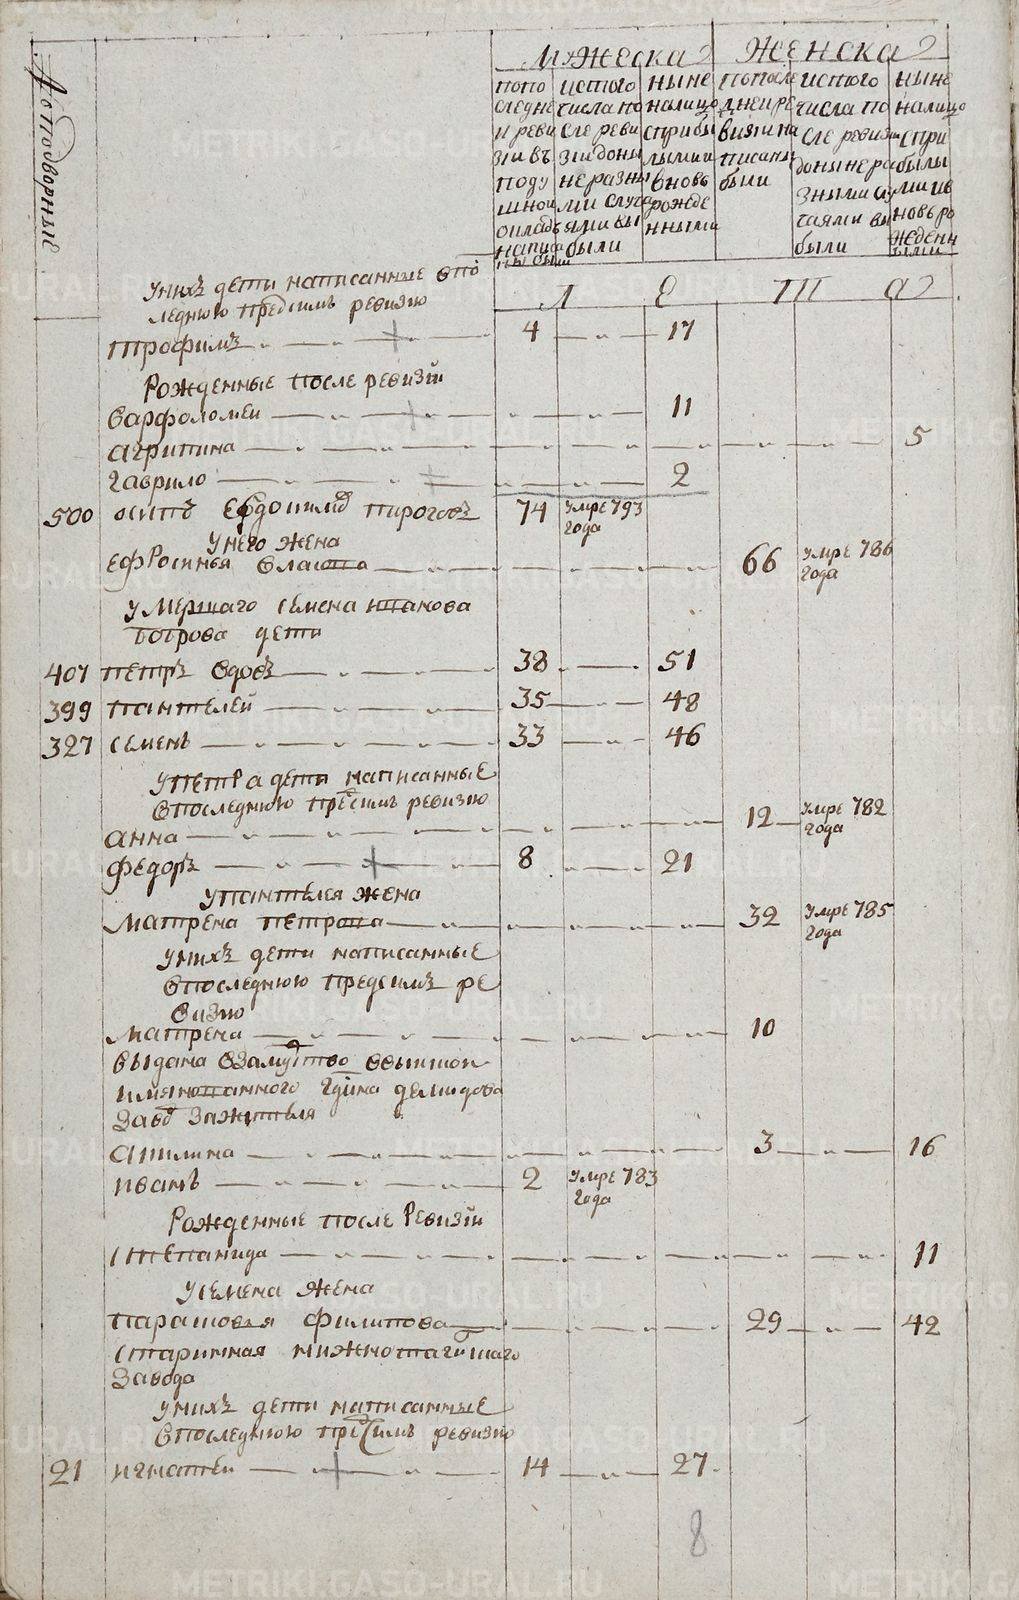 Подворные
Мужеска
Женска
по по
следне
й реви
зии въ
поду
шной
оклад
написа
ны были
ис того
числа по
сле реви
зии доны
не разны
ми случа
ями вы
были
ныне
налицо
с прибы
лыми и
вновь
рожде
нными
по после
дней ре
визии на
писаны
были
ис того
числа по
сле ревизии
доныне ра
зными слу
чаями вы
были
ныне
налицо
с при
былы
ми и в
новь ро
жденн
ыми
Л Е Т А
У нихъ дети написанные в по
леднюю пред симъ ревизию
трофимъ 4 17
Рожденные после ревизии
варфоломеи 11
агрипина 5
гаврило 2
500 осипъ Евдокимов пироговъ 74 умре 793
года
У него жена
ефросинья власова 66 умре 786
года
умершаго семена
дети
407 петръ вдовъ 38 51
399 пантелей 35 48
327 семенъ 33 46
У петра дети написанные
в последнюю пред симъ ревизию
анна 12 умре 782
года
федоръ 8 21
У пантелея жена
матрена петрова 32 умре 785
года
У нихъ дети написанные
в последнюю пред симъ ре
визию
матрена 10
выдана в замужство в выше
имянованного гдина демидова
завод за жителя
акилина 3 16
иванъ 2 умре 783
года
Рожденные после Ревизии
степанида 11
У семена жена
парасковья филипова 29 42
старинная нижнотагилшаго
завода
У нихъ дети написанные
в последнюю пред симъ ревизию
21 игнатеи 14 27
8
METRIKI.GASO-URAL.RU